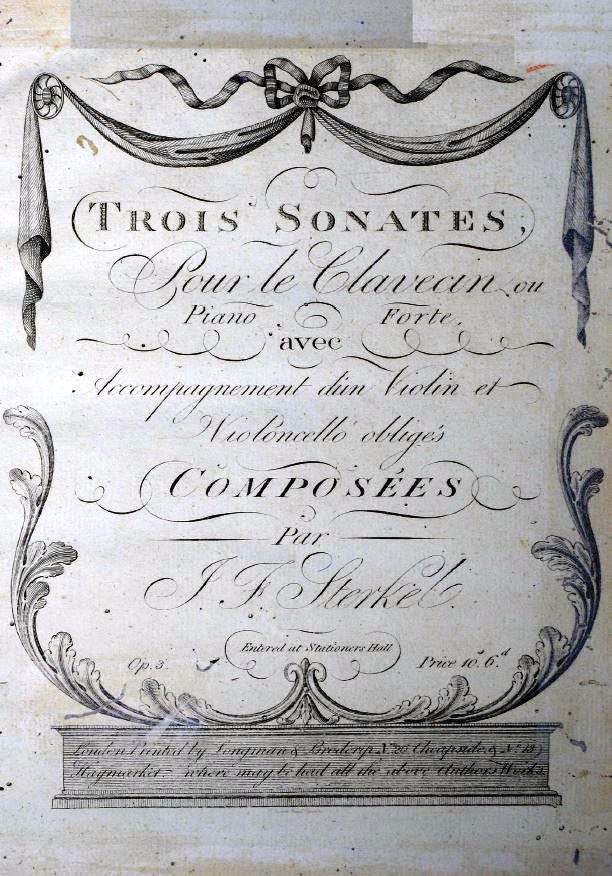 TROIS SONATES,
Pour le Clavecin ou
Piano Forte,
avec
Accompagnement d'un Violin et
Violoncello obligés
COMPOSÉES
Par
J. F. Sterkel.
Entered at Stationers Hall
Op. 3. Price 10s. 6d
London Printed by Longman & Broderip No. 26 Cheapside & No. 13
Haymarket where may be had all the above Authors Works